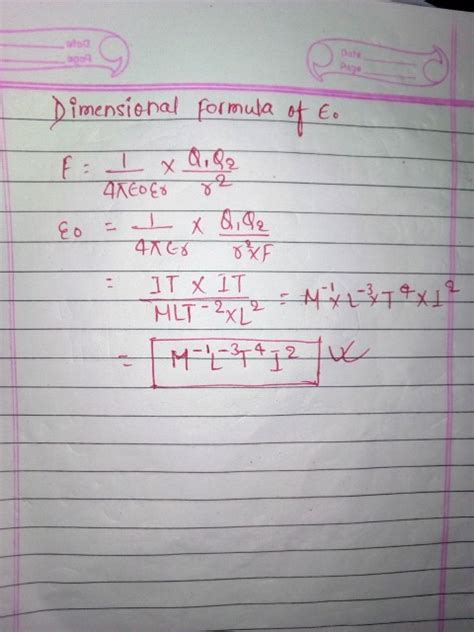 Date
Page
Date
Page
Dimensional formula of ε₀
F = 1/4πε₀εr × Q₁Q₂/r²
ε₀ = 1/4πεr × Q₁Q₂/r²×F
= IT × IT/MLT⁻²×L² = M⁻¹×L⁻³×T⁴×I²
= M⁻¹L⁻³T⁴I²